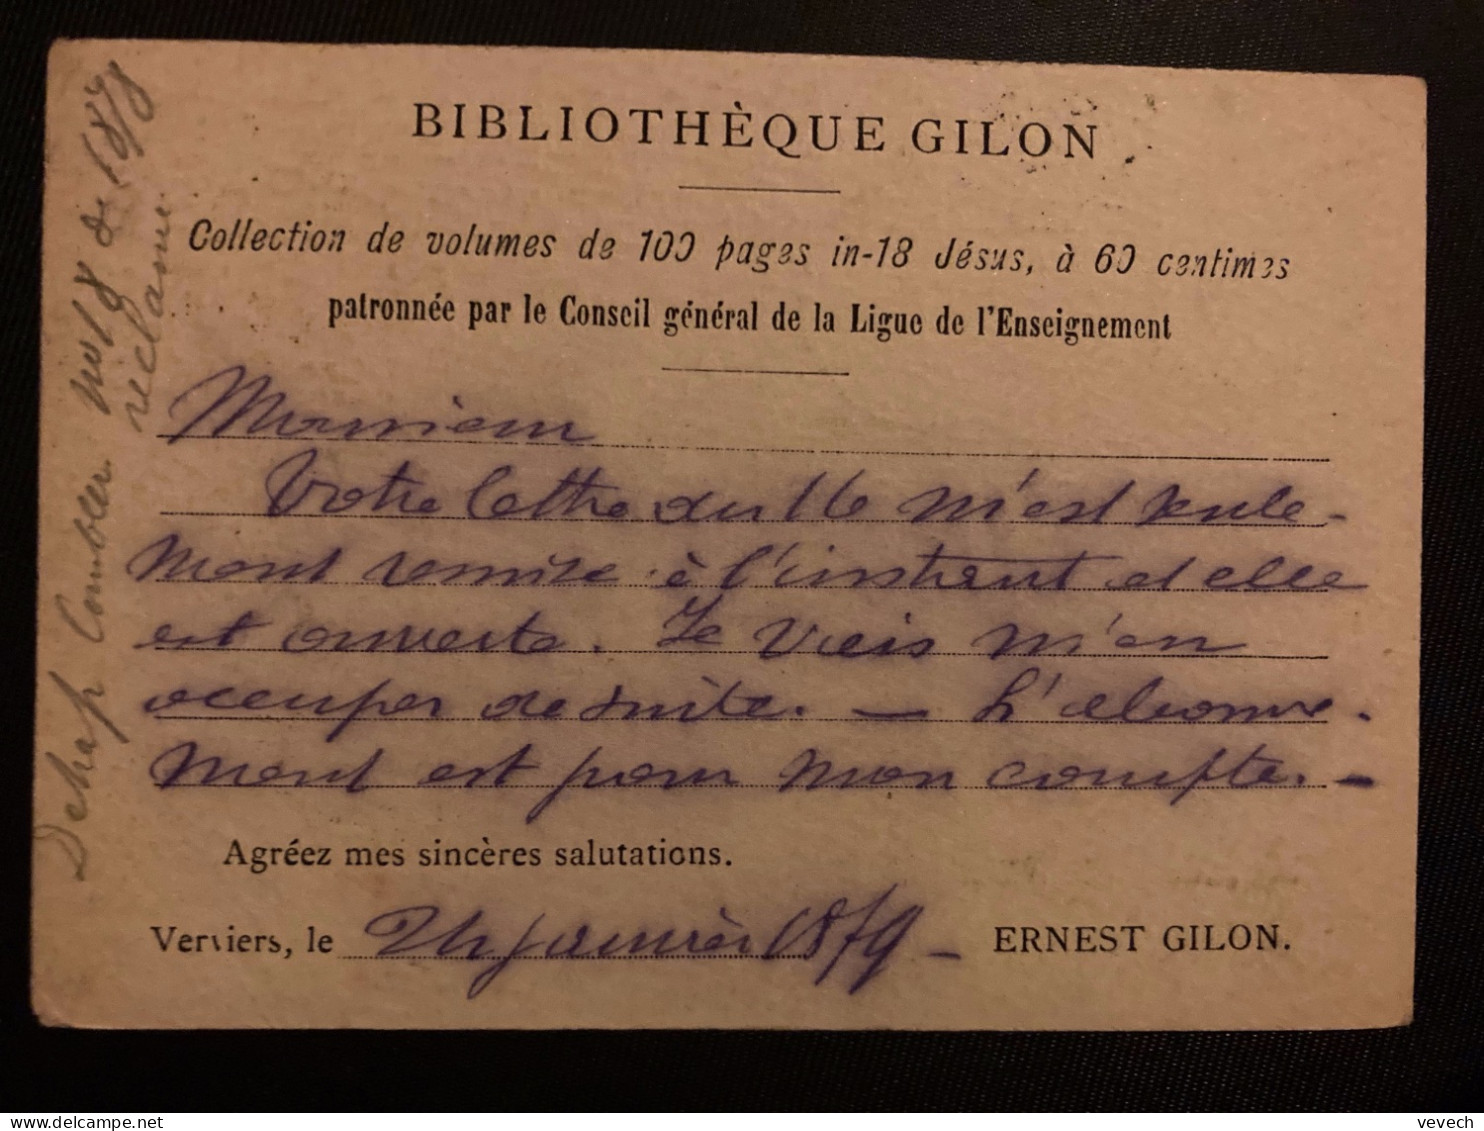 BIBLIOTHÈQUE GILON
Collection de volumes de 100 pages in-18 Jésus, à 60 centimes
patronnée par le Conseil général de la Ligue de l'Enseignement
Monsieur
Votre lettre du 16 m'est seule-
ment remise à l'instant et elle
est ouverte. Je vais m'en
occuper de suite. — L'abonne-
ment est pour mon compte. —
Agréez mes sincères salutations.
Verviers, le 24 janvier 1879 —
ERNEST GILON.
no 18 de 1878
réclame
vevech